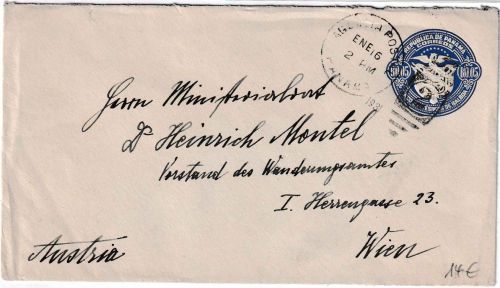 AGENCIA POS
ENE 16
2 PM
PANAMA
192
REPUBLICA DE PANAMA
CORREOS
B0.05 B0.05
DE BALBOA
Herrn Ministerialrat
Dr Heinrich Montel
Vorstand des Wanderungsamtes
I. Herrengasse 23.
Wien
Austria
14€